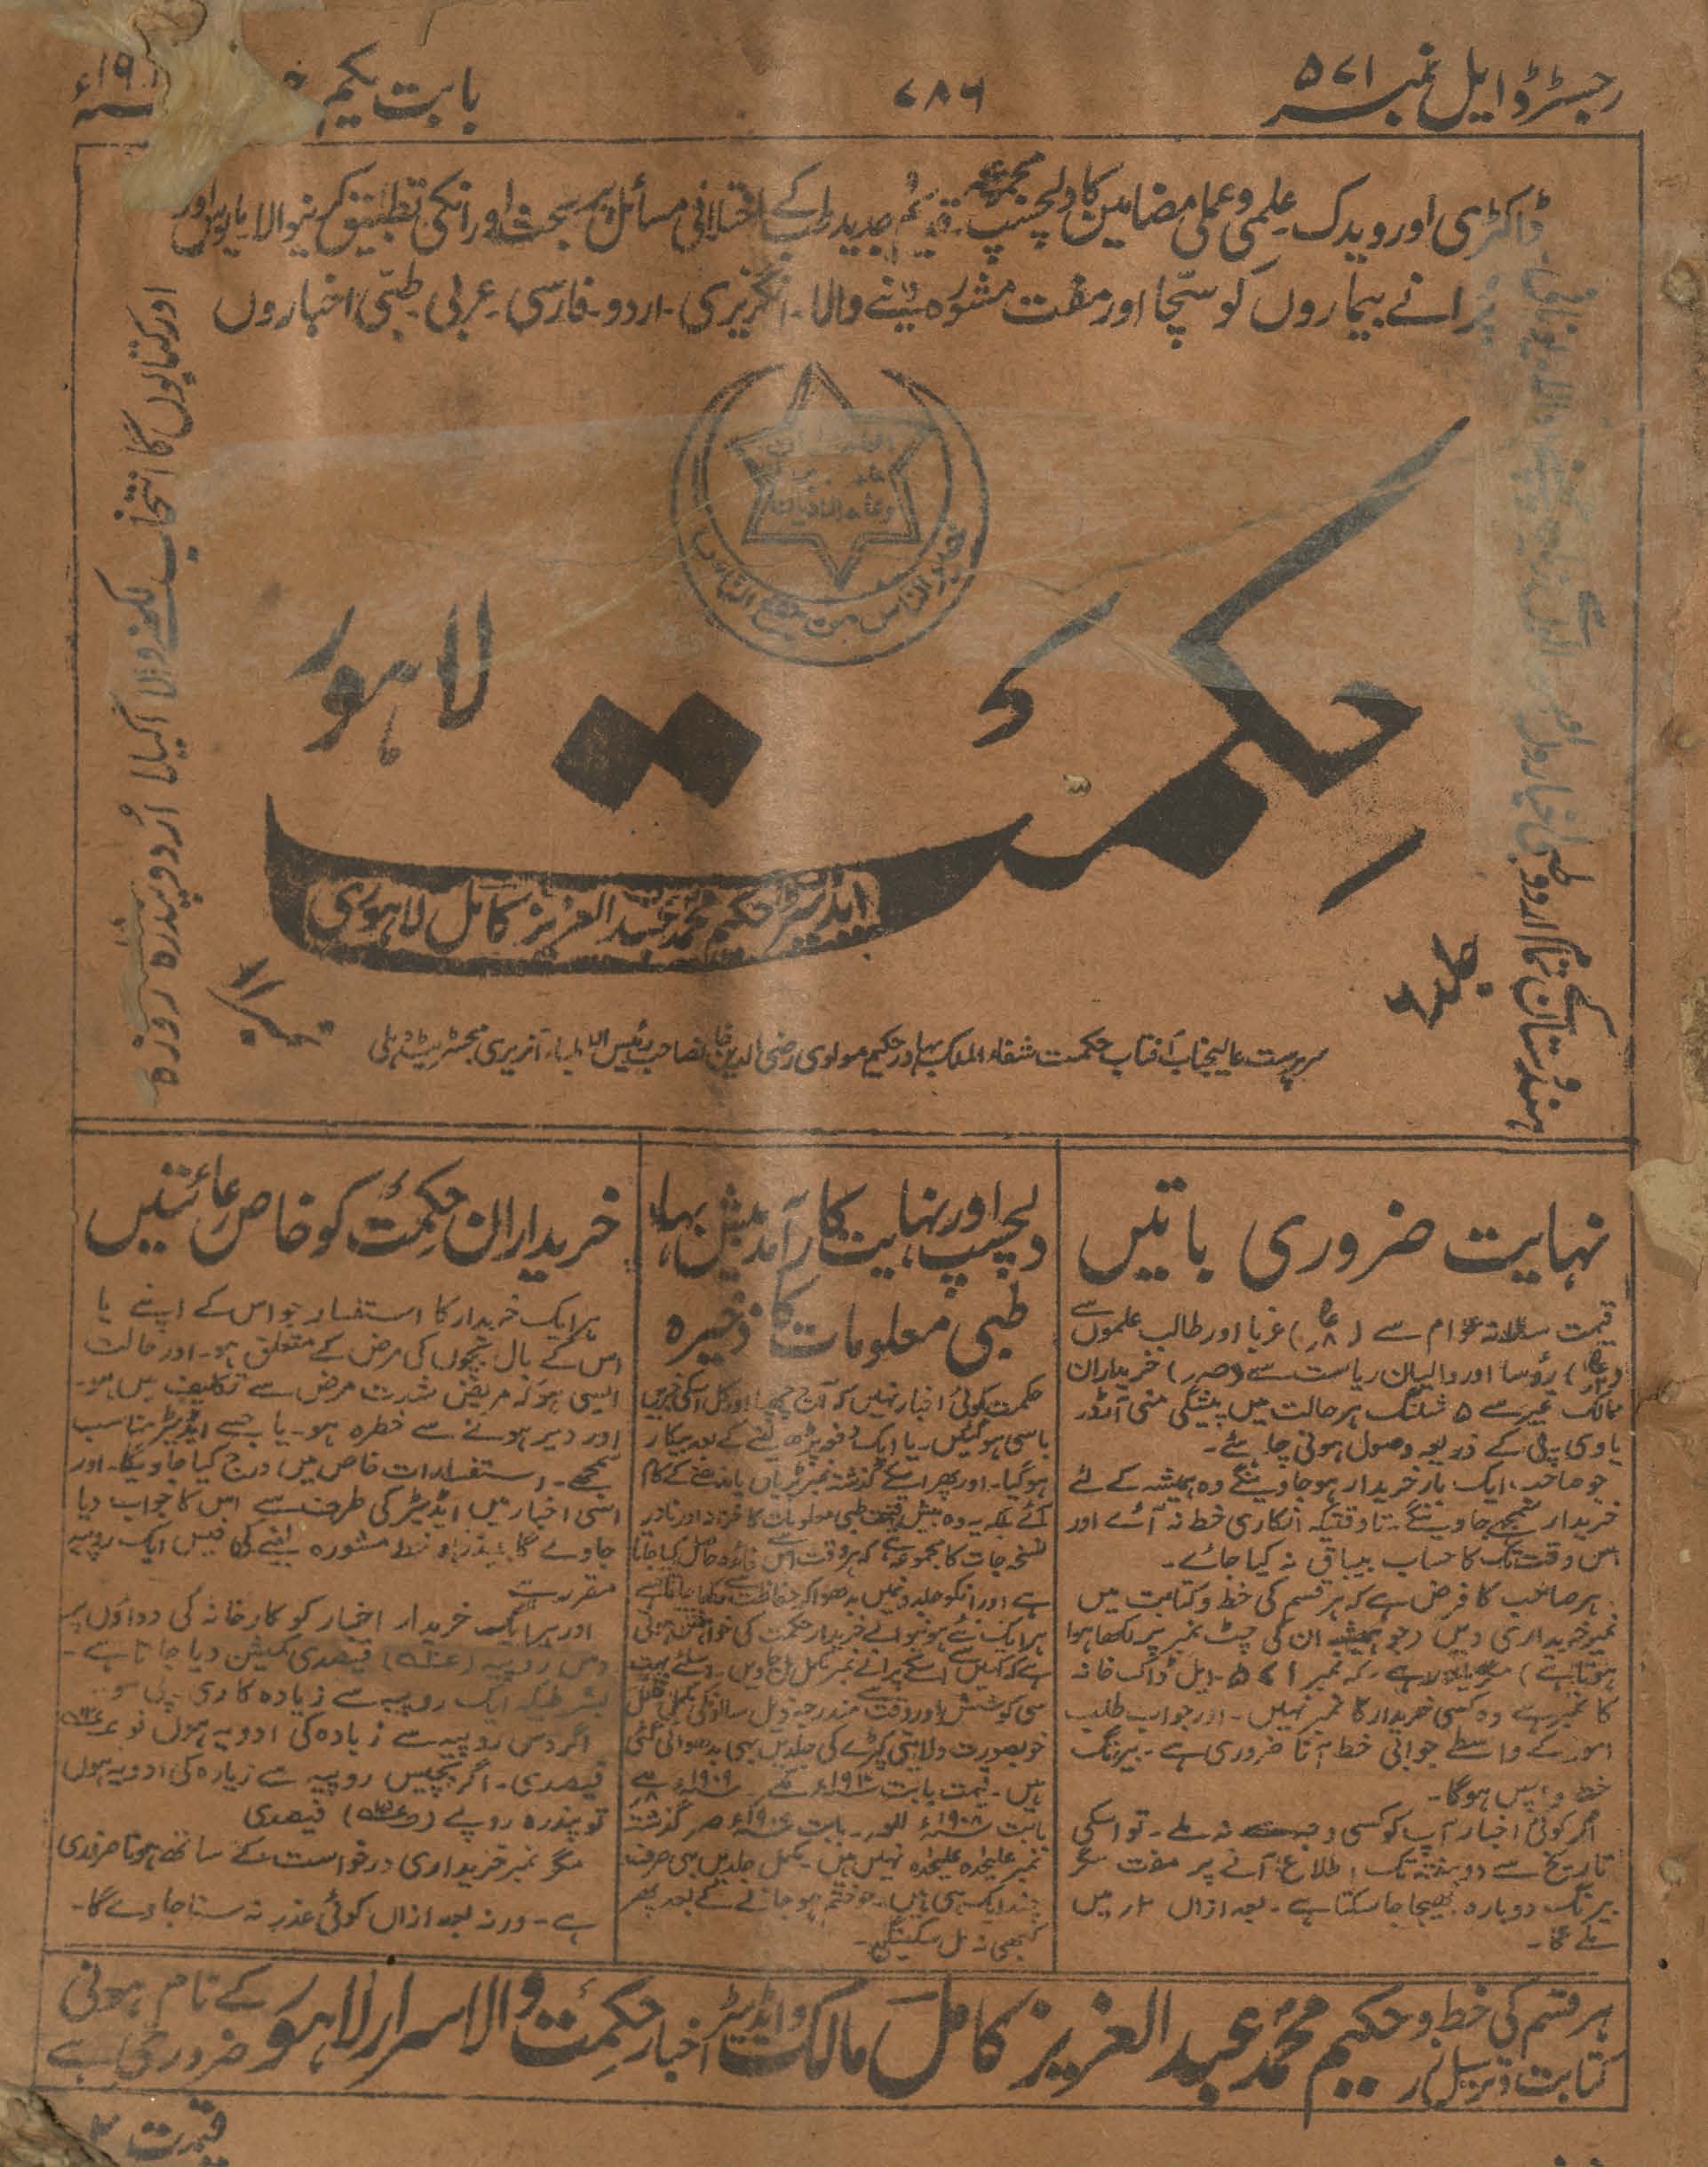 رجسٹرڈ ایل نمبر ۵۷۱
۷۸۶
بابت یکم
ڈاکٹری اور ویدک علمی و عملی مضامین کا دلچسپ مجموعہ۔ قدیم و جدید طب کے اختلافی مسائل پر بحث اور انکی تطبیق کرنیوالا مایوس اور
پرانے بیماروں کو سچا اور مفت مشورہ دینے والا۔ انگریزی۔ اردو۔ فارسی۔ عربی۔ طبی اخباروں
اور کتابوں کا انتخاب لکھنے والا اکیلا اردو پندرہ روزہ
ہندوستان کے تمام اردو طبی اخباروں
خیر الناس من ینفع الناس
حکمت
لاہور
ایڈیٹر حکیم محمد عبد العزیز کامل لاہوری
جلد
نمبر
سرپرست عالیجناب آفتاب حکمت شفاء الملک بہادر حکیم مولوی رضی الدین خانصاحب رئیس الاطباء آنریری مجسٹریٹ دہلی
نہایت ضروری باتیں
قیمت سالانہ عوام سے غربا اور طالب علموں سے
رؤسا اور والیان ریاست سے خریداران
ممالک غیر سے ۵ شلنگ ہر حالت میں پیشگی منی آرڈر
یا وی پی کے ذریعہ وصول ہونی چاہئے۔
جو صاحب ایک بار خریدار ہو جاوینگے وہ ہمیشہ کے لئے
خریدار سمجھے جاوینگے۔ تاوقتیکہ انکاری خط نہ آئے اور
اس وقت تک کا حساب بیباق نہ کیا جائے۔
ہر صاحب کا فرض ہے کہ ہر قسم کی خط و کتابت میں
نمبر خریداری دیں (جو ہمیشہ ان کی چٹ نمبر پر لکھا ہوا
ہوتا ہے) مگر یاد رہے۔ کہ نمبر ۵۷۱۔ ایل ڈاک خانہ
کا نمبر ہے وہ کسی خریدار کا نمبر نہیں۔ اور جواب طلب
امور کے واسطے جوابی خط آنا ضروری ہے۔ بیرنگ
خط واپس ہوگا۔
اگر کوئی اخبار آپ کو کسی وجہ سے نہ ملے۔ تو اسکی
تاریخ سے دو ہفتہ تک اطلاع آنے پر مفت مگر
بیرنگ دوبارہ بھیجا جا سکتا ہے۔ بعد ازاں میں
ملے گا۔
دلچسپ اور نہایت کارآمد بیش بہا
طبی معلومات کا ذخیرہ
حکمت کوئی اخبار نہیں کہ آج چھپا اور کل اسکی خبریں
باسی ہو گئیں۔ یا ایک دفعہ پڑھ لینے کے بعد بیکار
ہوگیا۔ اور پھر اسکے گذشتہ نمبر پڑیاں باندھنے کے کام
آئے بلکہ یہ وہ بیش قیمت طبی معلومات کا خزانہ اور نادر
نسخہ جات کا مجموعہ ہے کہ ہر وقت اس سے فائدہ حاصل کیا جاتا
ہے اور انکو جلدونمیں بندھوا کر حفاظت سے رکھا جاتا ہے
ہر ایک نئے ہونیوالے خریدار حکمت کی خواہش ہوتی
ہے کہ کہیں سے اسکے پرانے نمبر مکمل مل جاویں۔ اسلئے بہت
سی کوشش اور وقت سے مندرجہ ذیل سالونکی مکمل فائل
خوبصورت ولایتی کپڑے کی جلدیں بھی بندھوائی گئی
ہیں۔ قیمت بابت ۱۹۱۰ء ۱۹۰۹ء
بابت ۱۹۰۸ء بابت ۱۹۰۷ء گذشتہ
نمبر علیحدہ علیحدہ نہیں ہیں۔ مکمل جلدیں بھی صرف
چند ایک ہی ہیں۔ جو ختم ہو جانے کے بعد پھر
کبھی نہ مل سکینگی۔
خریداران حکمت کو خاص رعائتیں
ہر ایک خریدار کا استفسار جو اس کے اپنے یا
اس کے بال بچوں کی مرض کے متعلق ہو۔ اور حالت
ایسی ہو کہ مریض شدت مرض سے تکلیف میں ہو۔
اور دیر ہونے سے خطرہ ہو۔ یا جسے ایڈیٹر مناسب
سمجھے۔ استفسارات خاص میں درج کیا جاویگا۔ اور
اسی اخبار میں ایڈیٹر کی طرف سے اس کا جواب دیا
جاوے گا بذریعہ خط مشورہ لینے کی فیس ایک روپیہ
مقرر ہے
اور ہر ایک خریدار اخبار کو کارخانہ کی دواؤں پر
دس روپیہ فیصدی کمیشن دیا جاتا ہے۔
بشرطیکہ ایک روپیہ سے زیادہ کا وی۔پی ہو۔
اگر دس روپیہ سے زیادہ کی ادویہ ہوں تو
فیصدی۔ اگر پچیس روپیہ سے زیادہ کی ادویہ ہوں
تو پندرہ روپے فیصدی
مگر نمبر خریداری درخواست کے ساتھ ہونا ضروری
ہے۔ ورنہ بعد ازاں کوئی عذر نہ سنا جاوے گا۔
ہر قسم کی خط و کتابت و ترسیل زر حکیم محمد عبد العزیز کامل مالک و ایڈیٹر اخبار حکمت و الاسرار لاہور کے نام ہونی ضروری ہے
قیمت